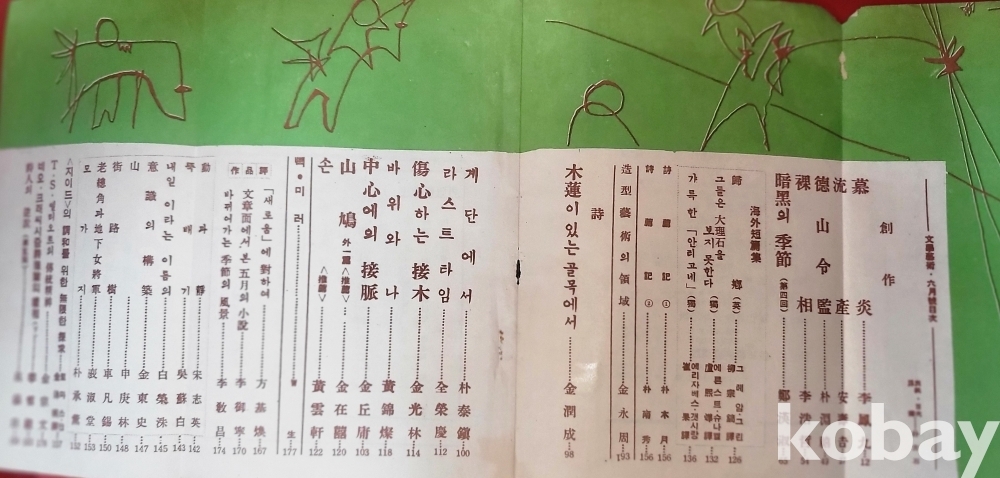 文學藝術·六月號目次
創作
炎 李鳳
流產 安壽吉
德山令監 朴
裸相 李
暗黑의 季節(第四回)
海外短篇集
歸鄉(英) 그레함 그린 柳宗鎬譯 126
그들은 大理石을 보지 못한다(獨) 에른스트·슈나벨 盧熙燁譯 132
가륵한「안리고네」(獨) 에리자베스·겟시람 崔 譯 136
詩 記① 朴木月 156
詩 記② 朴南秀 156
造型藝術의 領域 金永周 193
詩
木蓮이 있는 골목에서 金潤成 98
계단에서 朴泰鎭 100
라스트 타임 全榮慶 112
傷心하는 接木 金光林 114
바위와 나 黃錦燦 118
中心에의 接脈 金丘庸 103
山鳩 外一篇<推薦> 金在囍 120
손<推薦> 黃雲軒 122
백·미러 生 177
作品評
「새로움」에 對하여 方基煥 167
文章面에서 본 五月의 小說 李御寧 170
바뀌어가는 季節의 風景 李敎昌 174
動과 靜 宋志英 142
뚝배기 吳蘇白 143
내일이라는 이름의 白榮洙 145
意識의 構築 金東史 147
山 申庚林 148
街路樹 車凡錫
老總角과 地下女將軍 裵淑堂 153
모가지 朴承薰 152
<지이드>의 調和를 위한 無限한 探求
T·S·엘리오트의 傳統精神
kobay